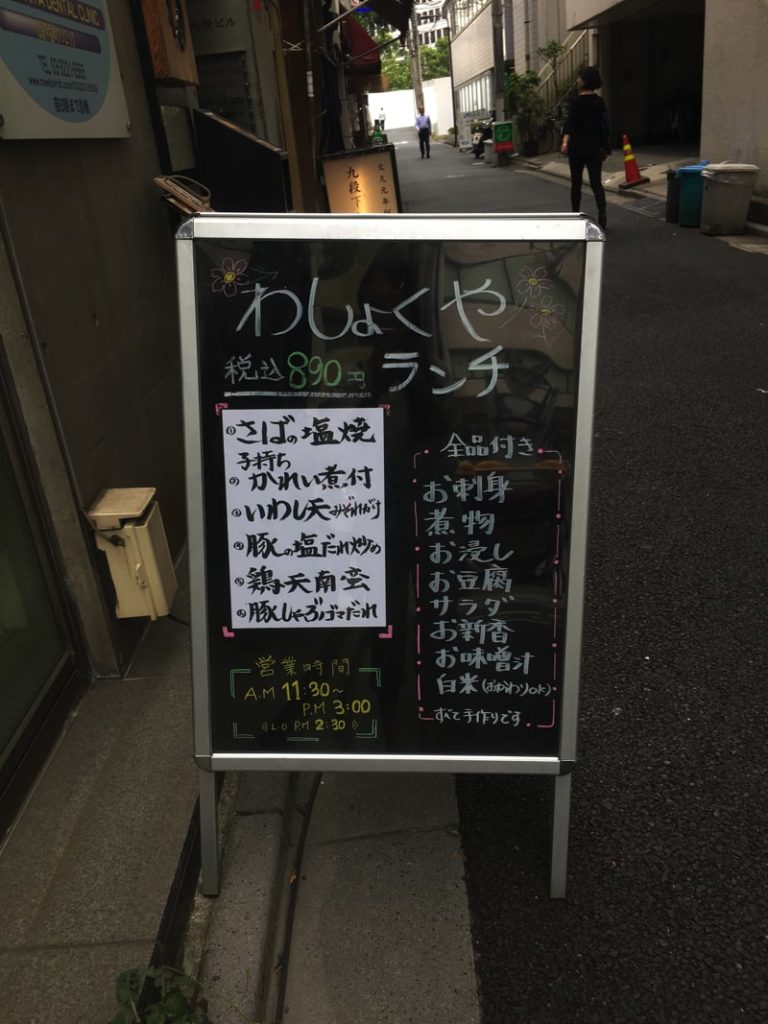 DENTAL CLINIC
九段下
わしょくや
税込890円 ランチ
①さばの塩焼
子持ち
②かれい煮付
③いわし天みぞれがけ
④豚の塩だれ炒め
⑤鶏天南蛮
⑥豚しゃぶゴマだれ
全品付き
お刺身
煮物
お浸し
お豆腐
サラダ
お新香
お味噌汁
白米(おかわりok)
すべて手作りです
営業時間
A.M 11:30~
P.M 3:00
《L.O P.M 2:30》